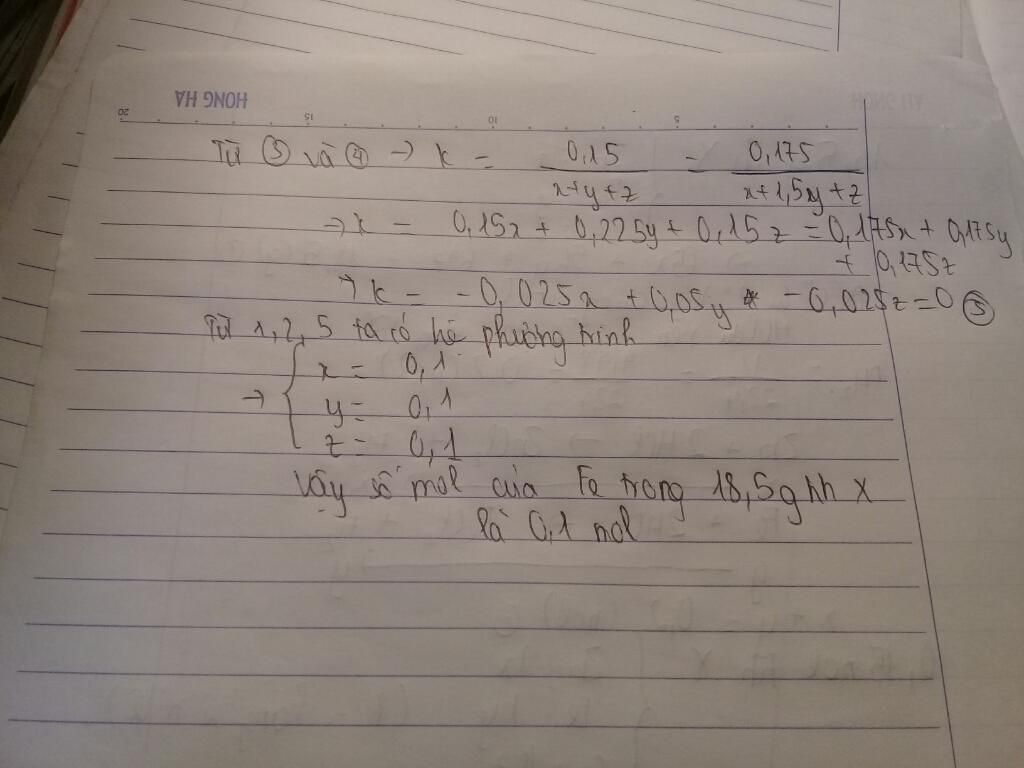 HONG HA
20 15 10 5
Từ ③ và ④ → k = 0,15 / x+y+z = 0,175 / x+1,5y+z
→ k = 0,15x + 0,225y + 0,15z = 0,175x + 0,175y
+ 0,175z
→ k = -0,025x + 0,05y - 0,025z = 0 ⑤
Từ 1, 2, 5 ta có hệ phương trình
→ { x = 0,1
y = 0,1
z = 0,1
Vậy số mol của Fe trong 18,5g hh X
là 0,1 mol